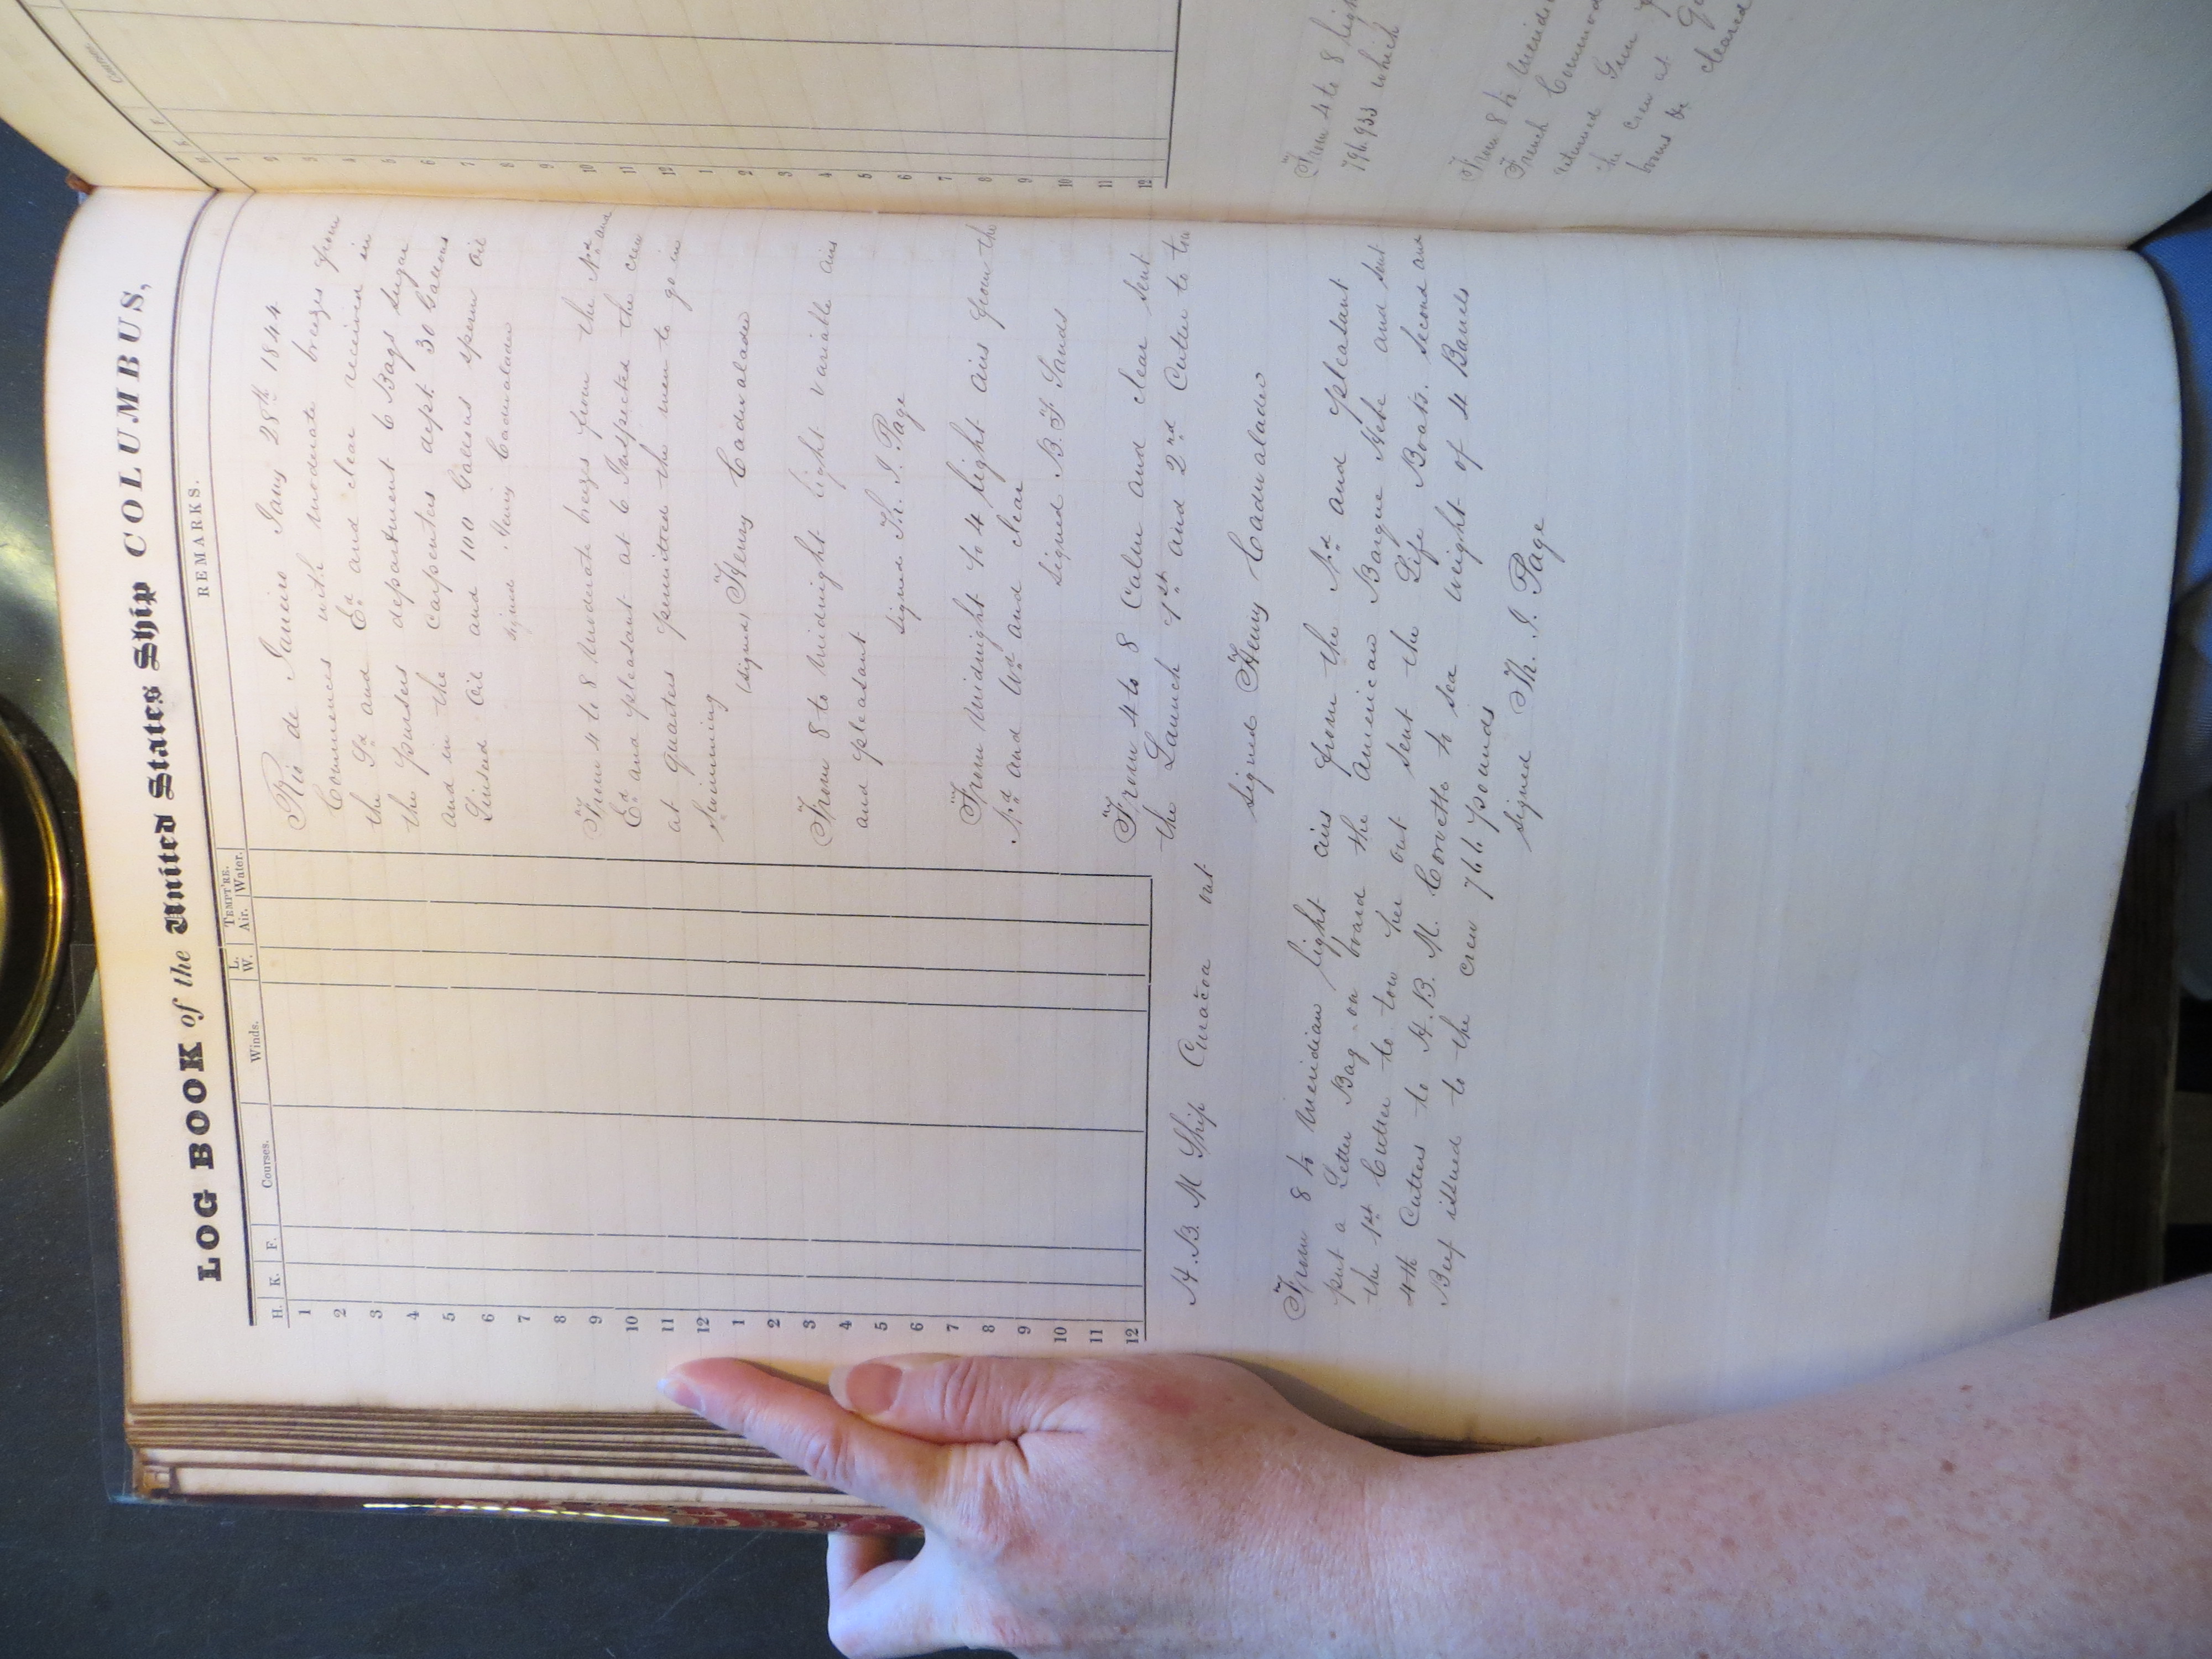 LOG BOOK of the United States Ship COLUMBUS,
H. K. F. Courses. Winds. L. W. TEMPT'RE. Air. Water. REMARKS.
1
2
3
4
5
6
7
8
9
10
11
12
1
2
3
4
5
6
7
8
9
10
11
12
Rio de Janeiro Jany 28th 1844
Commences with moderate breezes from
the Sd and Ed and clear received in
the pursers department 6 Bags sugar
and in the carpenters dept. 30 Gallons
Linseed Oil and 100 Gallons sperm Oil
signed Henry Cadwalader
From 4 to 8 Moderate breezes from the Nd and
Ed and pleasant at 6 Inspected the crew
at quarters permitted the men to go in
swimming
(signed) Henry Cadwalader
From 8 to Midnight light variable airs
and pleasant
signed Th. J. Page
From Midnight to 4 light airs from the
Nd and Wd and clear
signed B. F. Sands
From 4 to 8 Calm and clear sent
the Launch 1st and 2nd Cutter to tow
H. B. M Ship Curacoa out
signed Henry Cadwalader
From 8 to Meridian light airs from the Nd and pleasant
put a Letter Bag on board the American Barque Hebe and sent
the 1st Cutter to tow her out sent the Life Boats. second and
4th Cutters to H. B. M. Corvette to sea weight of 4 Barrels
Beef issued to the crew 766 pounds
signed Th. J. Page
Courses
H. K. F.
1
2
3
4
5
6
7
8
9
10
11
12
1
2
3
4
5
6
7
8
9
10
11
12
From 4 to 8 ligh
796.933 which
From 8 to Meridi
French Commod
returned Gun
the crew at
bows &c cleared